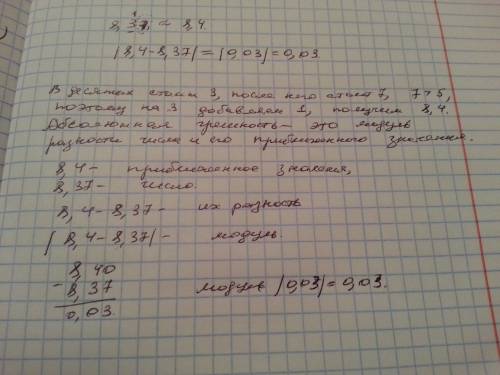 8,37 ≈ 8,4.
|8,4-8,37|=|0,03|=0,03.
В десятых стоит 3, после него стоит 7, 7>5,
поэтому на 3 добавляем 1, получаем 8,4.
Абсолютная погрешность - это модуль
разности числа и его приближенного значения.
8,4 - приближенное значение,
8,37 - число.
8,4-8,37 - их разность
|8,4-8,37| - модуль.
8,40
- 8,37
0,03.
модуль |0,03|=0,03.